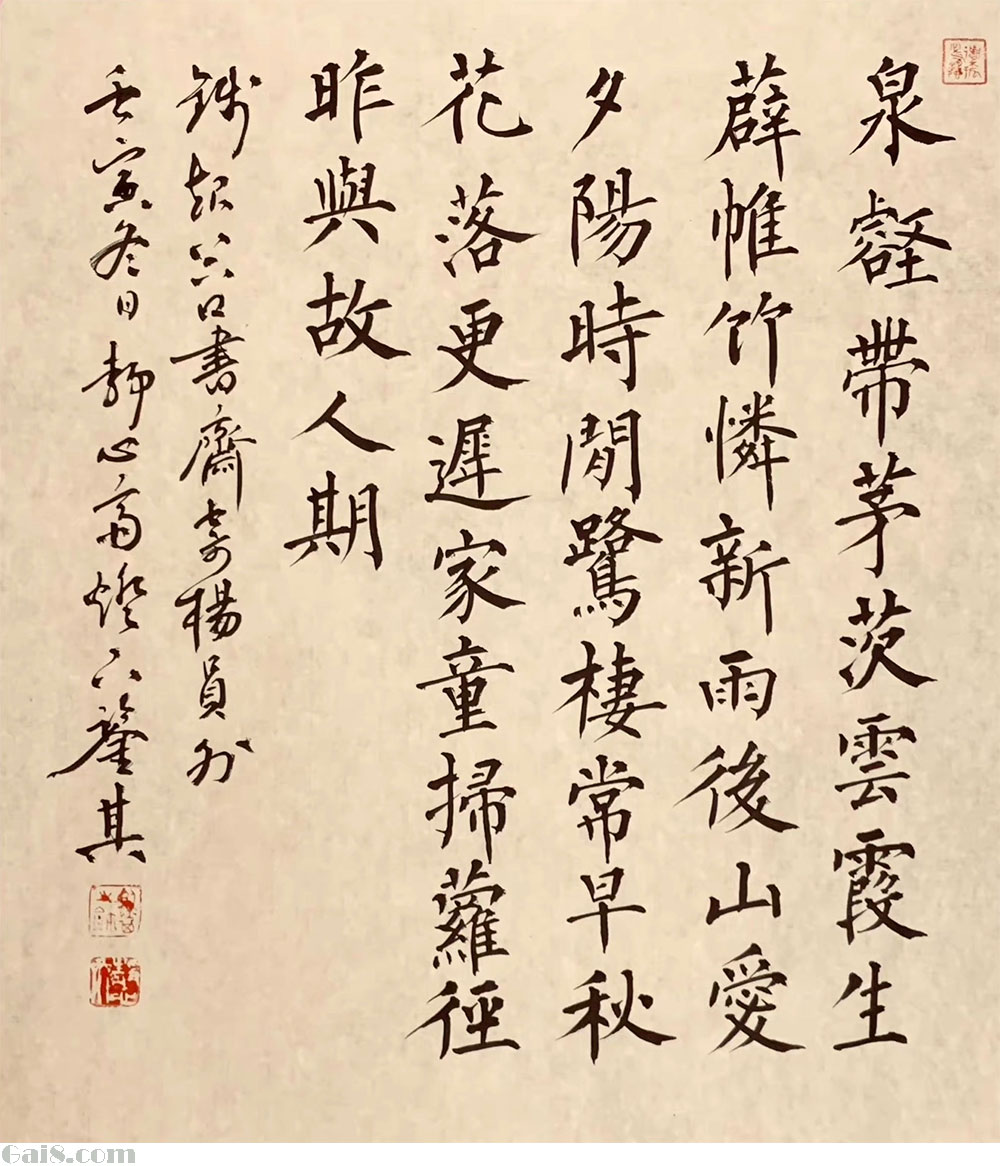 泉壑帶茅茨雲霞生
薜帷竹憐新雨後山愛
夕陽時閒鷺棲常早秋
花落更遲家童掃蘿徑
昨與故人期
錢起谷口書齋寄楊員外
壬寅冬日靜心齋燈下 其
Gai8.com